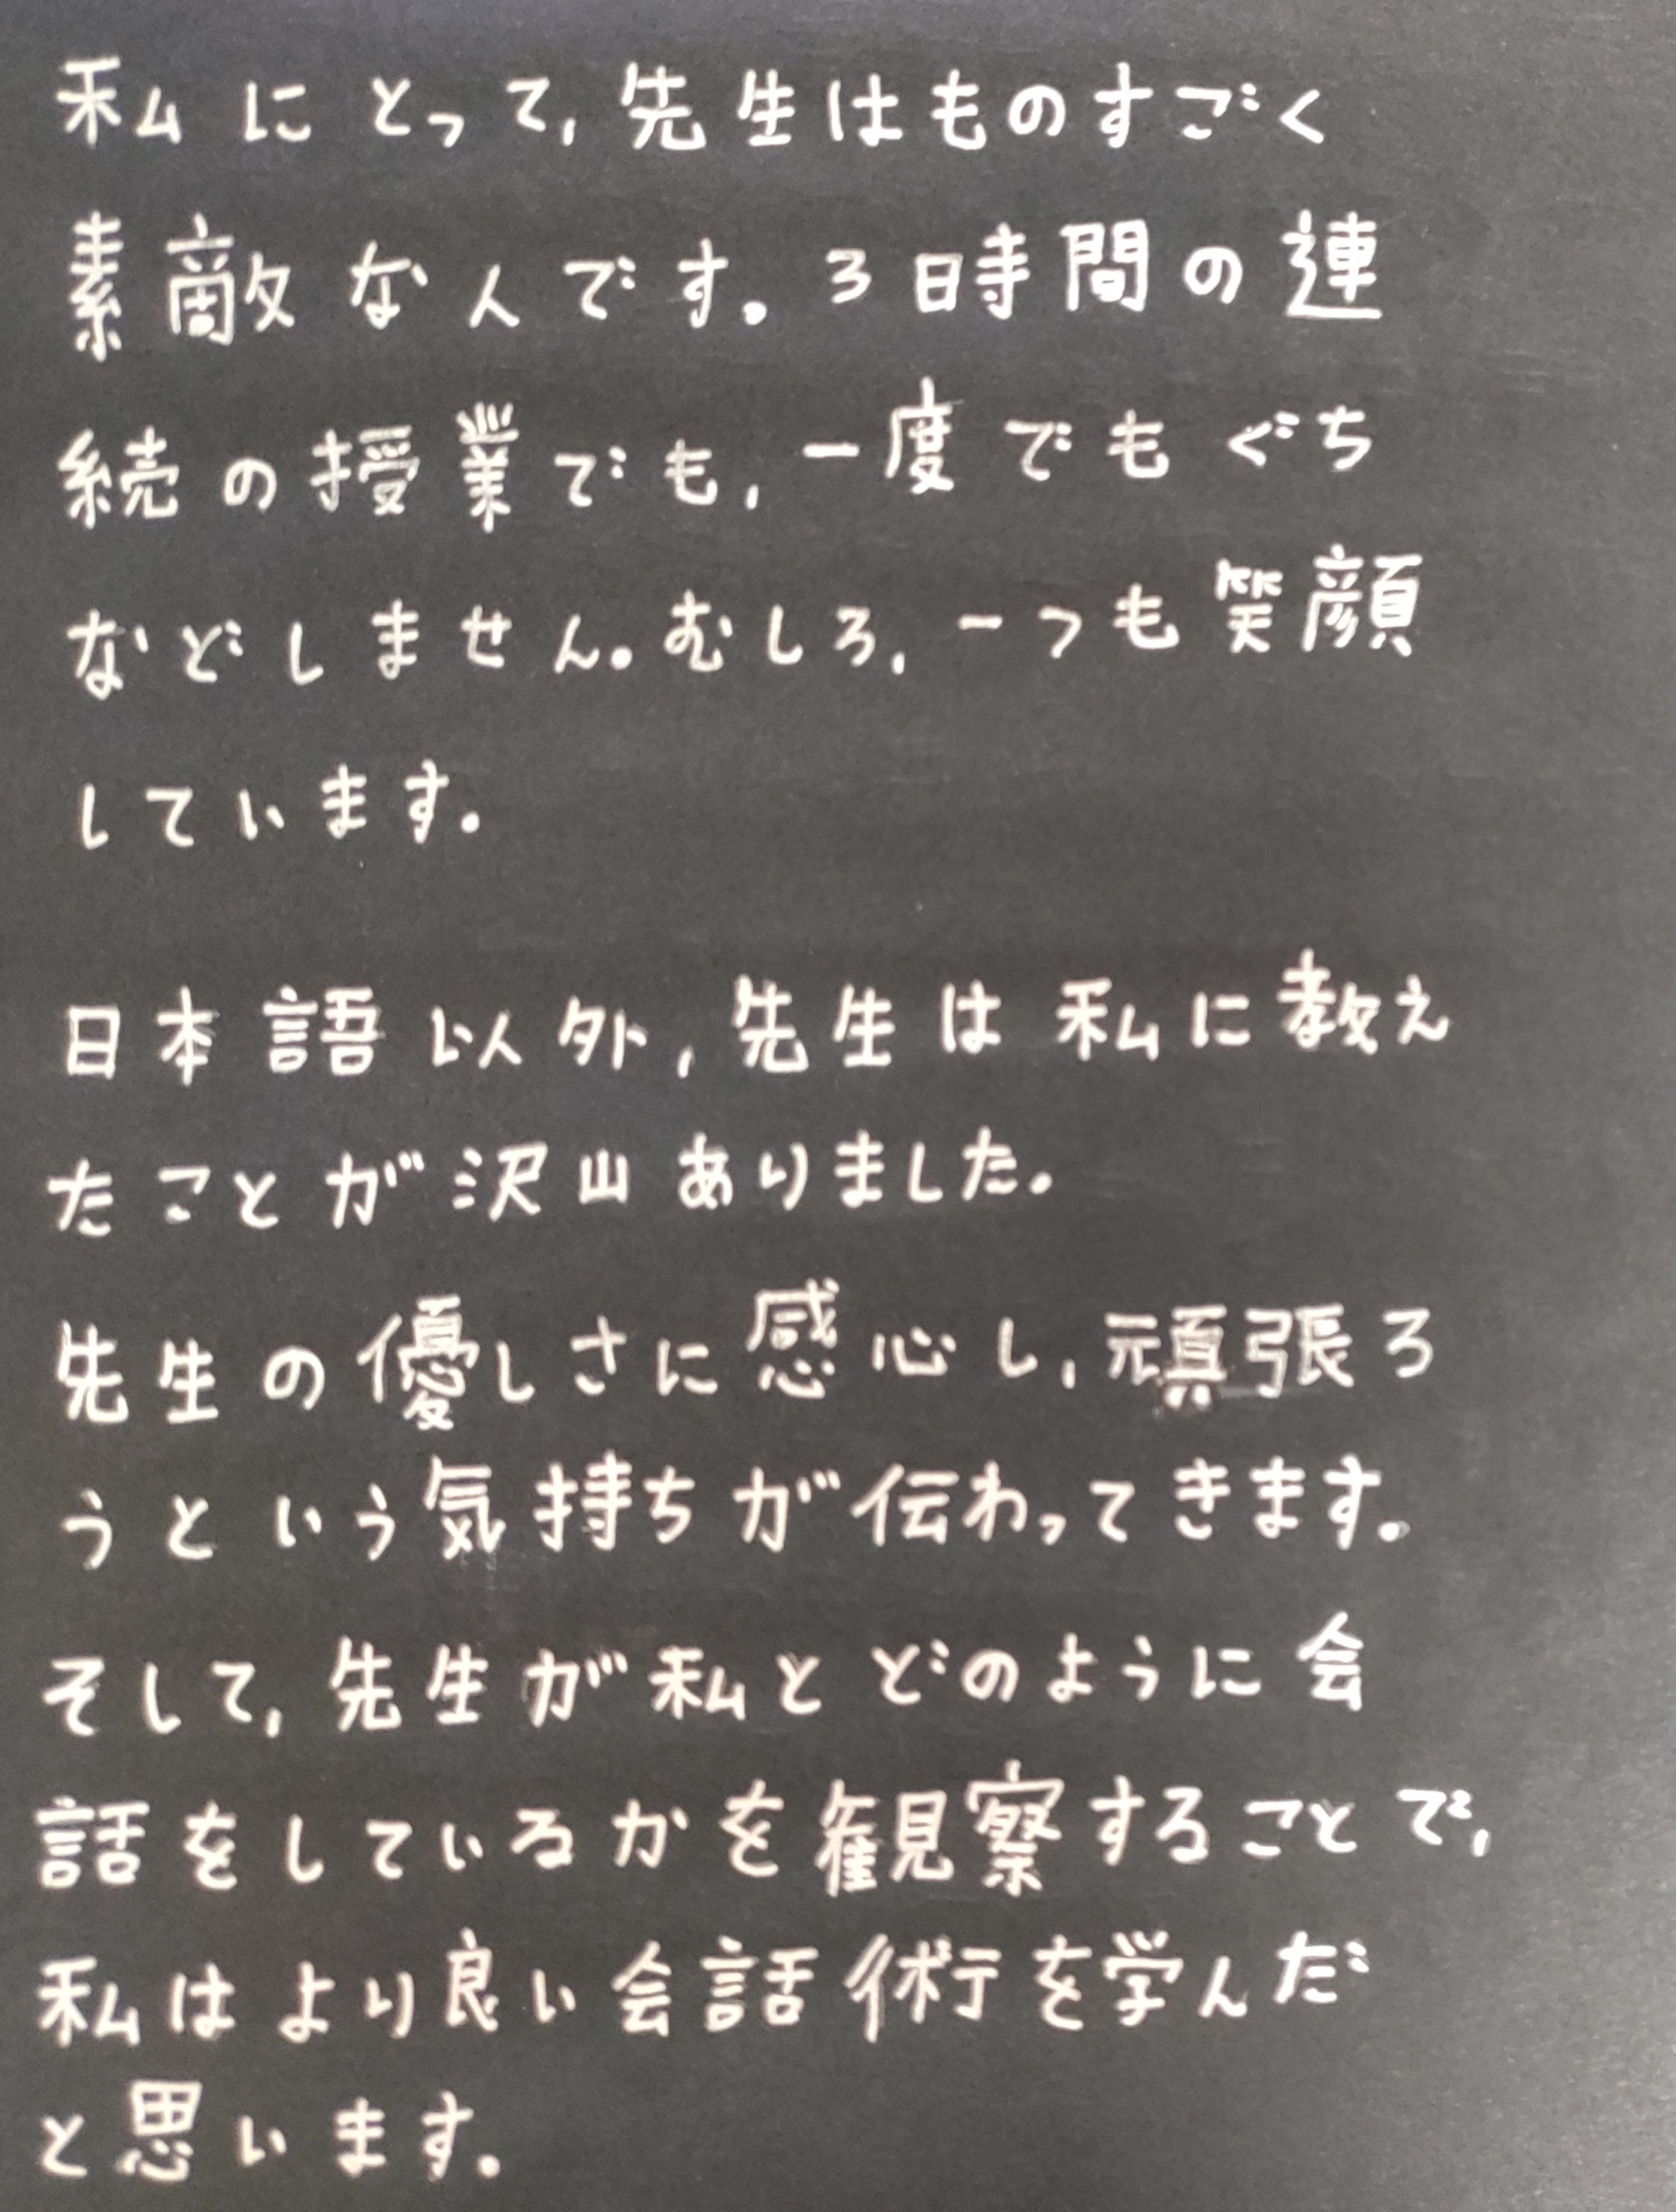 私にとって, 先生はものすごく
素敵なんです。3時間の連
続の授業でも, 一度でもぐち
などしません。むしろ, 一つも笑顔
しています。
日本語以外, 先生は私に教え
たことが沢山ありました。
先生の優しさに感心し, 頑張ろ
うという気持ちが伝わってきます。
そして, 先生が私とどのように会
話をしているかを観察することで,
私はより良い会話術を学んだ
と思います。